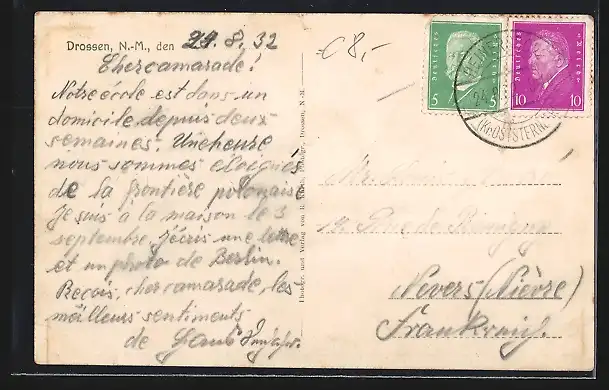 Drossen, N.-M., den 29. 8. 32
Cher camarade!
Notre école est dans un
domicile depuis deux
semaines. Une heure
nous sommes éloignés
de la frontière polonaise
Je suis à la maison le 3
septembre, j'écris une lettre
et un photo de Berlin.
Reçois, cher camarade, les
meilleurs sentiments
de
C8,-
Deutsches Reich
5 5
Deutsches Reich
10 10
(Kr. OSTSTERNB.
Photogr. und Verlag von
Drossen, N.-M.
Mr.
Rue de
Nevers (Nièvre)
Frankreich.